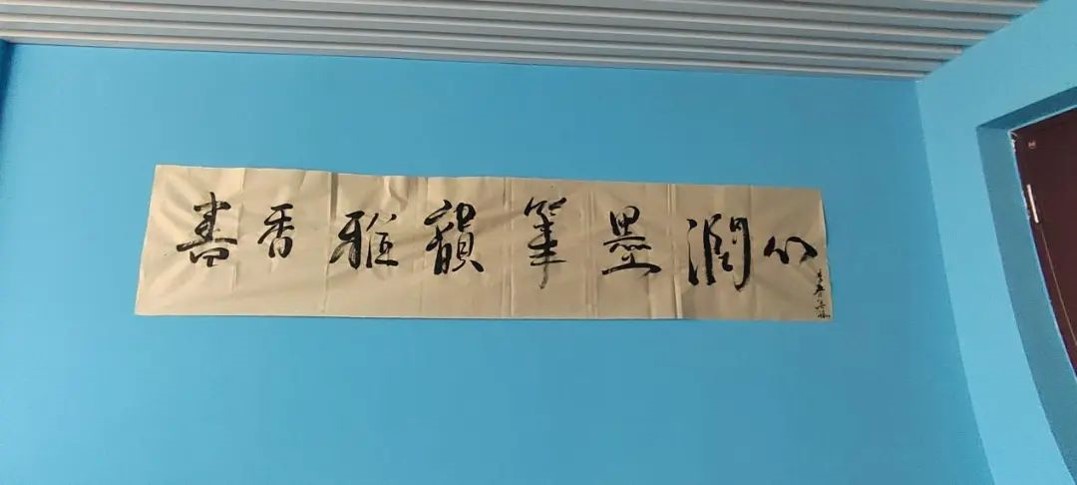 書香雅韻筆墨潤心